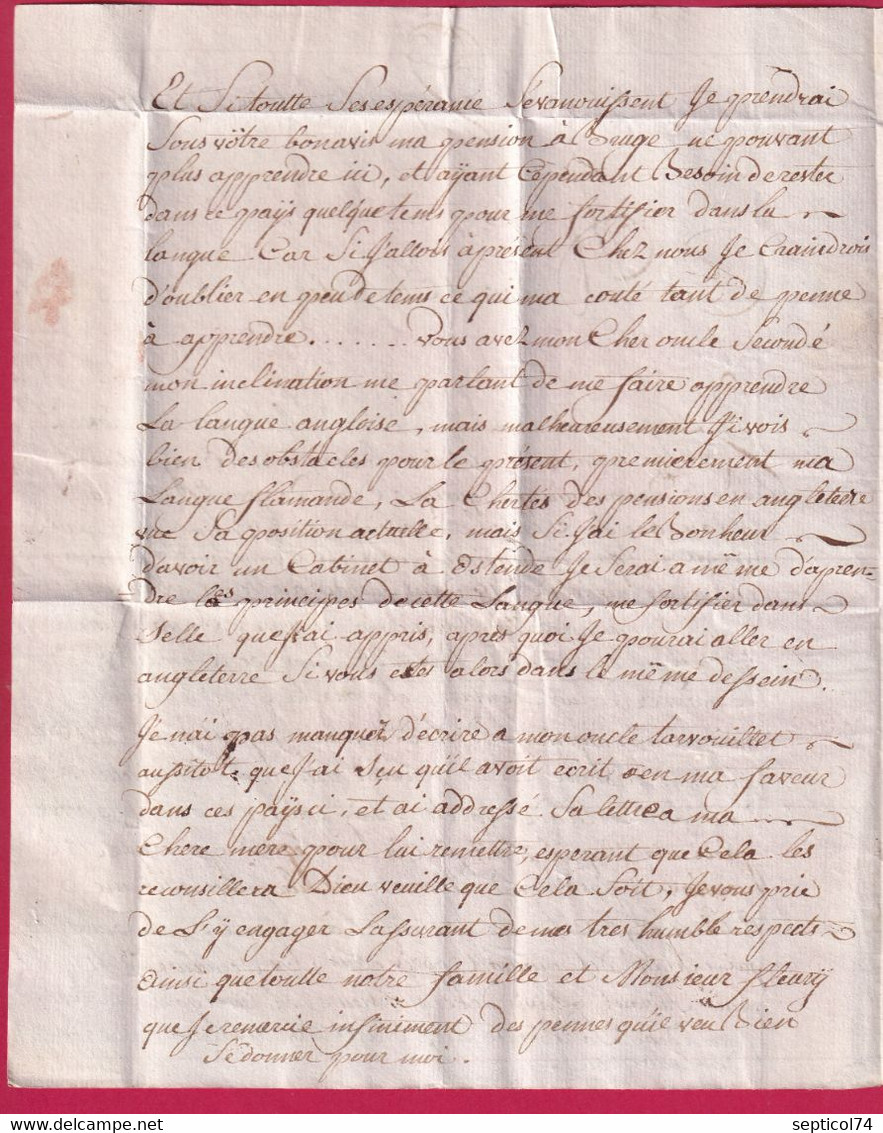 Et Si toutte Ses espéranse Sévanouissent Je prendrai
Sous vôtre bon avis ma pension à Bruge, ne pouvant
plus apprendre ici, et aÿant Cépendant Besoin de rester
dans ce païs quelque tems pour me fortifier dans la
langue Car Si J'allois àprésent Chez nous Je Craindrois
d'oublier en peu de tems ce qui ma couté tant de penne
à apprendre ........ Vous avez mon Cher oncle Secondé
mon inclination me parlant de me faire apprendre
La langue angloise, mais malheureusement J'i vois
bien des obstacles pour le présent, premierement ma
Langue flamande, La Chertés des pensions en angleterre
Sa position actuelle, mais Si J'ai le Bonheur
d'avoir un Cabinet à Ostende Je Serai a même d'apren-
dre les principes de cette Langue, me fortifier dans
Selle que J'ai appris, aprés quoi Je pourai aller en
angleterre Si vous etes alors dans le même dessein.
Je n'ai pas manquez d'écrire a mon oncle tarvouillet
aussitot que J'ai Sçu qu'il avoit ecrit en ma faveur
dans ces païs ci, et ai addressé Sa lettre a ma
Chere mere pour lui remettre, esperant que Cela les
reconsillera Dieu veuille que Cela Soit, Je vous prie
de L'ÿ engager Lassurant de mes tres humble respects
Ainsi que toutte notre famille et Monsieur fleurÿ
que Je remercie infiniment des pennes qu'il veu Bien
Sé donner pour moi.
septicol74